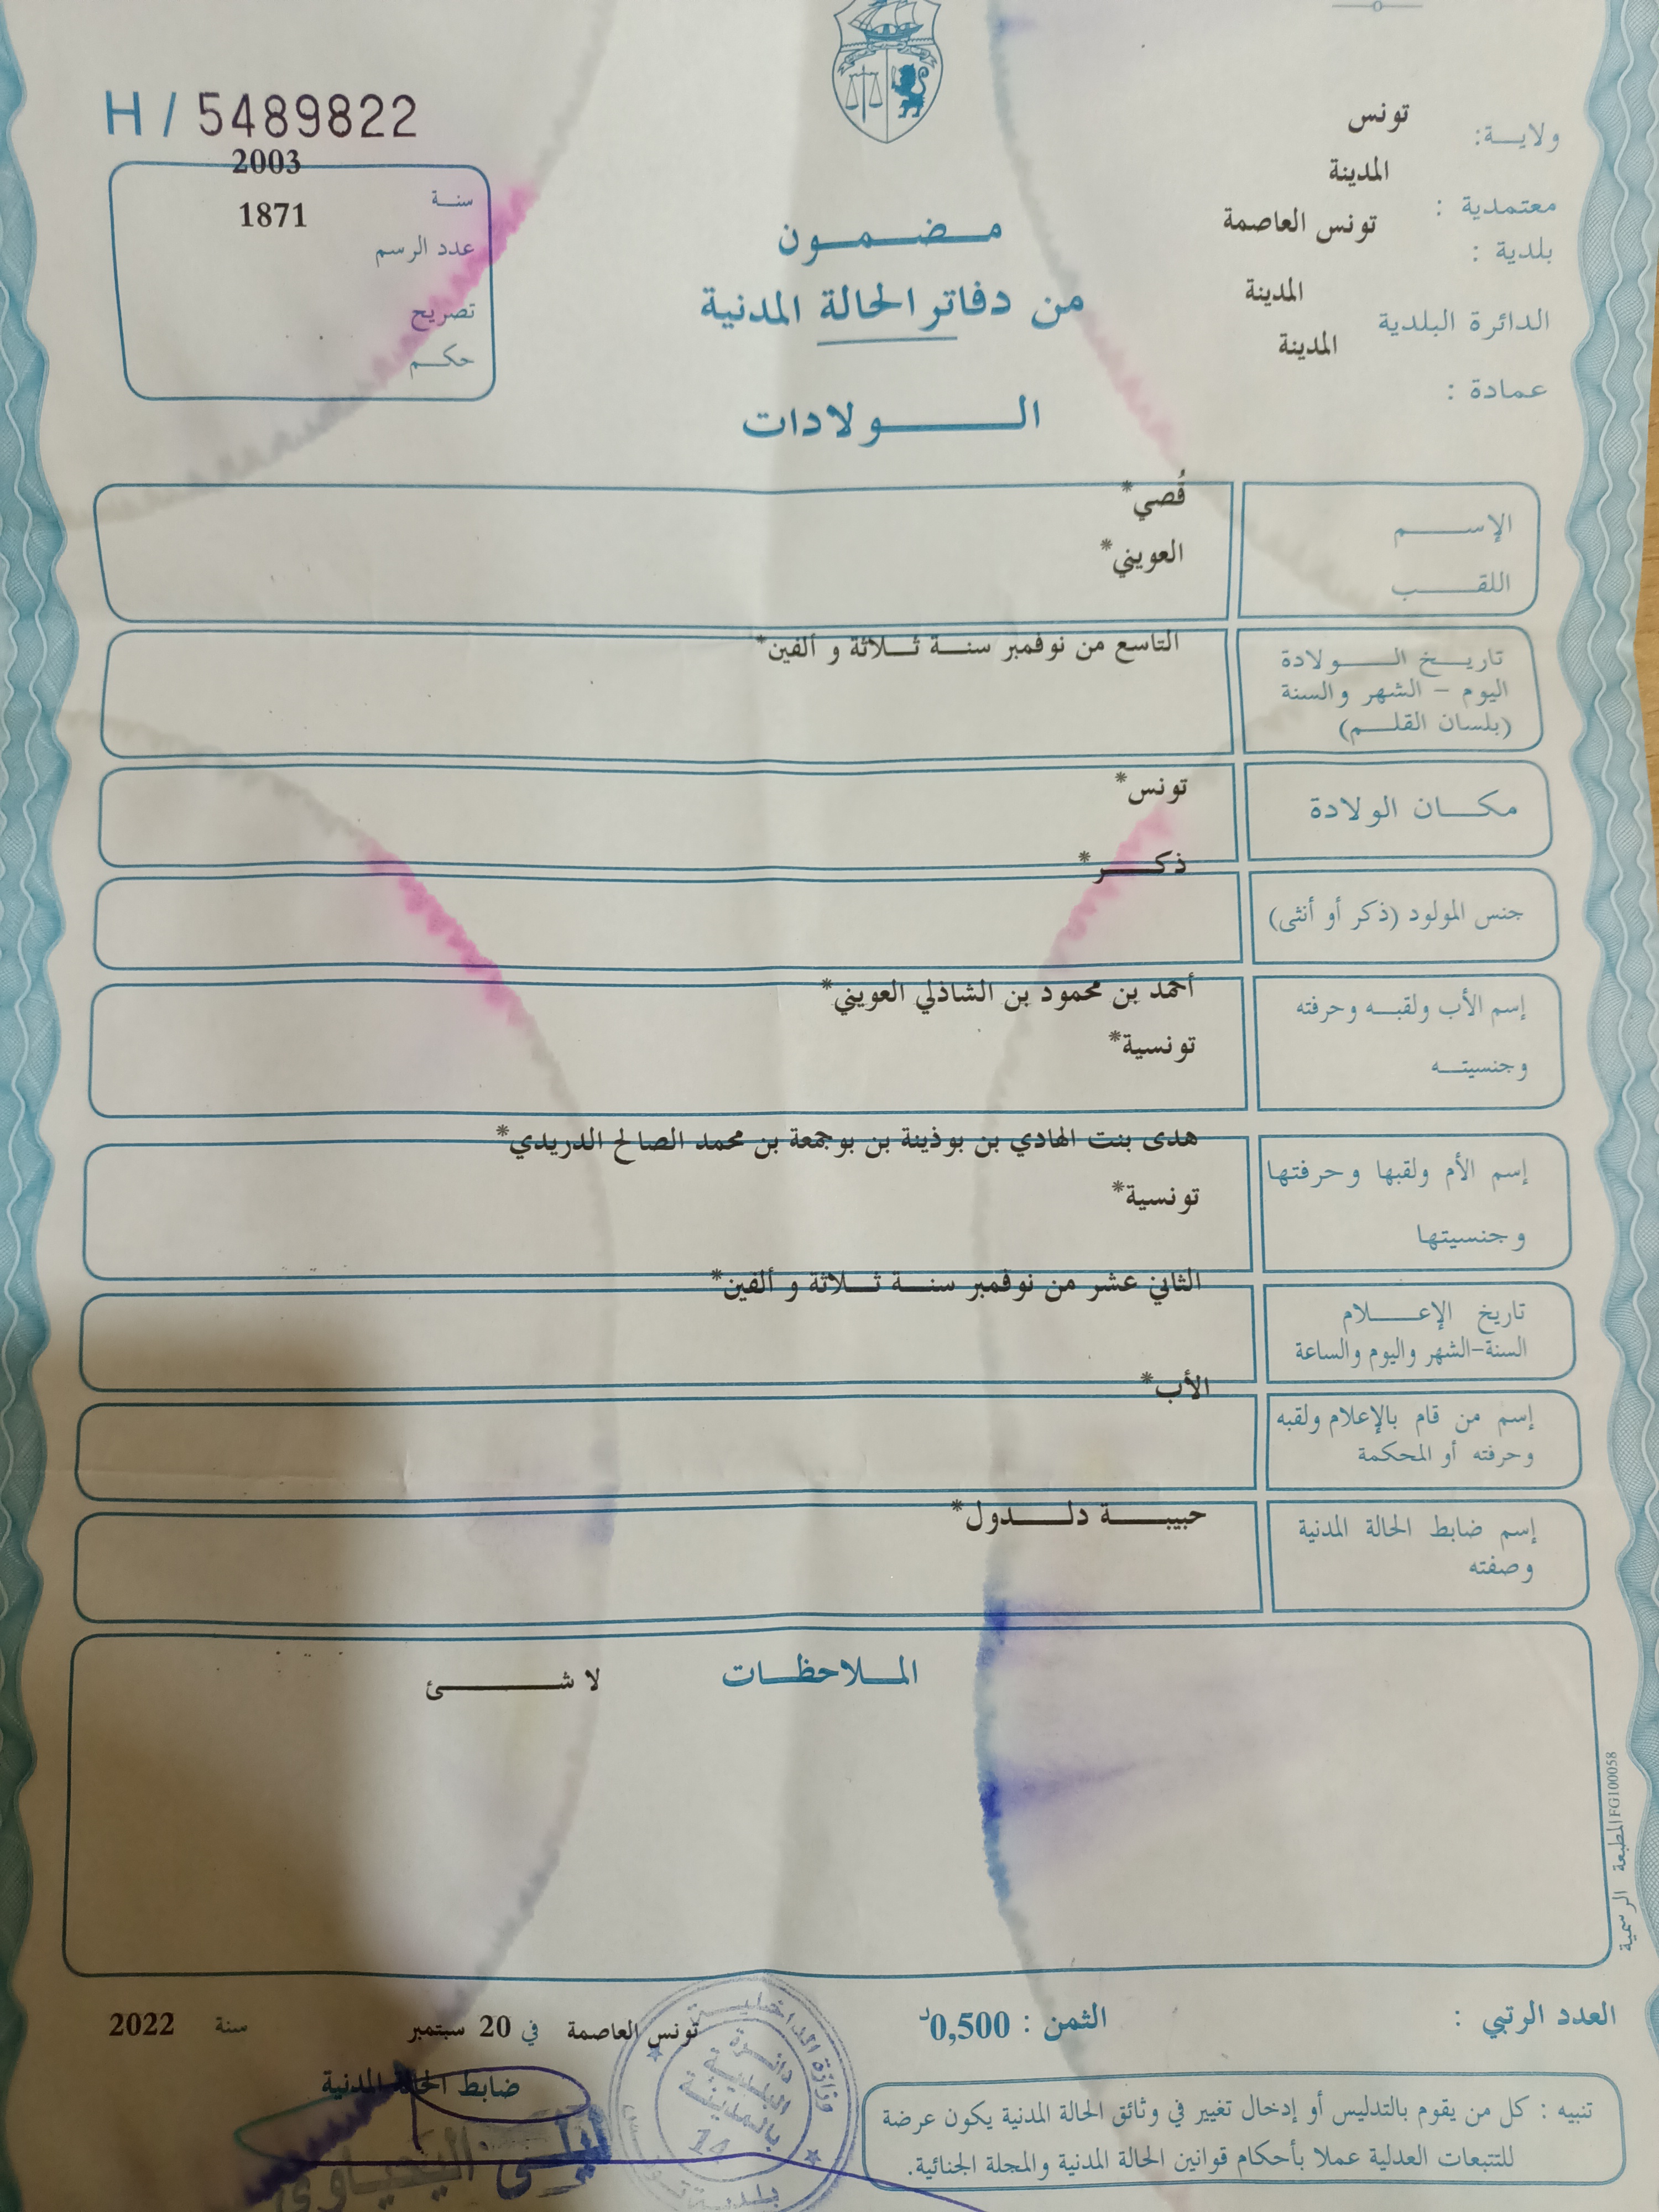 H / 5489822
2003
سنة
1871
عدد الرسم
تصريح
حكم
ولاية: تونس
معتمدية : المدينة
بلدية : تونس العاصمة
الدائرة البلدية المدينة
عمادة : المدينة
مضمون
من دفاتر الحالة المدنية
الولادات
الإسم قُصي*
اللقب العويني*
تاريخ الولادة التاسع من نوفمبر سنة ثلاثة و ألفين*
اليوم – الشهر والسنة
(بلسان القلم)
مكان الولادة تونس*
جنس المولود (ذكر أو أنثى) ذكر*
إسم الأب ولقبه وحرفته أحمد بن محمود بن الشاذلي العويني*
وجنسيته تونسية*
إسم الأم ولقبها وحرفتها هدى بنت الهادي بن بوذينة بن بوجمعة بن محمد الصالح الدريدي*
وجنسيتها تونسية*
تاريخ الإعلام الثاني عشر من نوفمبر سنة ثلاثة و ألفين*
السنة-الشهر واليوم والساعة
إسم من قام بالإعلام ولقبه الأب*
وحرفته أو المحكمة
إسم ضابط الحالة المدنية حبيبة دلدول*
وصفته
الملاحظات لا شئ
المطبعة الرسمية FG100058
العدد الرتبي :
الثمن : 0,500د
تونس العاصمة في 20 سبتمبر سنة 2022
ضابط الحالة المدنية
ليلى اليحياوي
وزارة الداخلية
دائرة
البلدية
بالمدينة
14
بلدية تونس
تنبيه : كل من يقوم بالتدليس أو إدخال تغيير في وثائق الحالة المدنية يكون عرضة
للتتبعات العدلية عملا بأحكام قوانين الحالة المدنية والمجلة الجنائية.